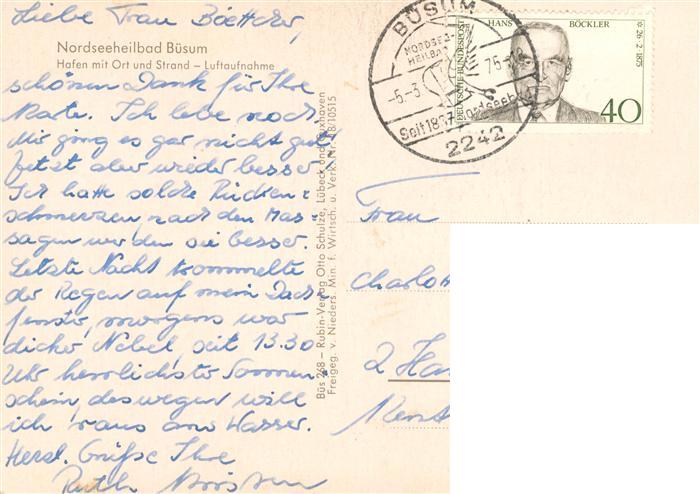 Liebe Frau Böettcher,
Nordseeheilbad Büsum
Hafen mit Ort und Strand – Luftaufnahme
schönen Dank für Ihre
Karte. Ich lebe noch
Mir ging es gar nicht gut
jetzt aber wieder besser
Ich hatte solche Rücken=
schmerzen, nach den Mas=
sagen werden sie besser.
Letzte Nacht trommelte
der Regen auf mein Dach=
fenster, morgens war
dicker Nebel, seit 13.30
Uhr herrlichster Sonnen=
schein, deswegen will
ich raus ans Wasser.
Herzl. Grüße Ihre
Ruth
Büs 268 – Rubin-Verlag Otto Schulze, Lübeck und Cuxhaven
Freigeg. v. Nieders. Min. f. Wirtsch. u. Verk. Nr. 18/10515
BÜSUM
NORDSEE-
HEILBAD
-6.-3. 75-
Seit 1837 Nordseebad
2242
DEUTSCHE BUNDESPOST
HANS BÖCKLER
*26·2·1875
40
Frau
Charlott
2 Ham